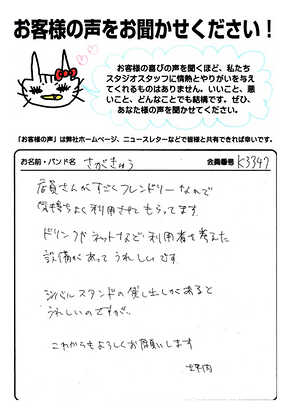 お客様の声をお聞かせください!
お客様の喜びの声を聞くほど、私たち
スタジオスタッフに情熱とやりがいを与え
てくれるものはありません。いいこと、悪
いこと、どんなことでも結構です。ぜひ、
あなた様の声を聞かせてください。
「お客様の声」は弊社ホームページ、ニュースレターなどで皆様と共有できれば幸いです。
お名前・バンド名 さがきゅう 会員番号 K3347
店員さんがすごくフレンドリーなので
気持ちよく利用させてもらってます
ドリンクやネットなど利用者を考えた
設備があってうれしいです
シンバルスタンドの貸し出しがあると
うれしいのですが。
これからもよろしくお願いします